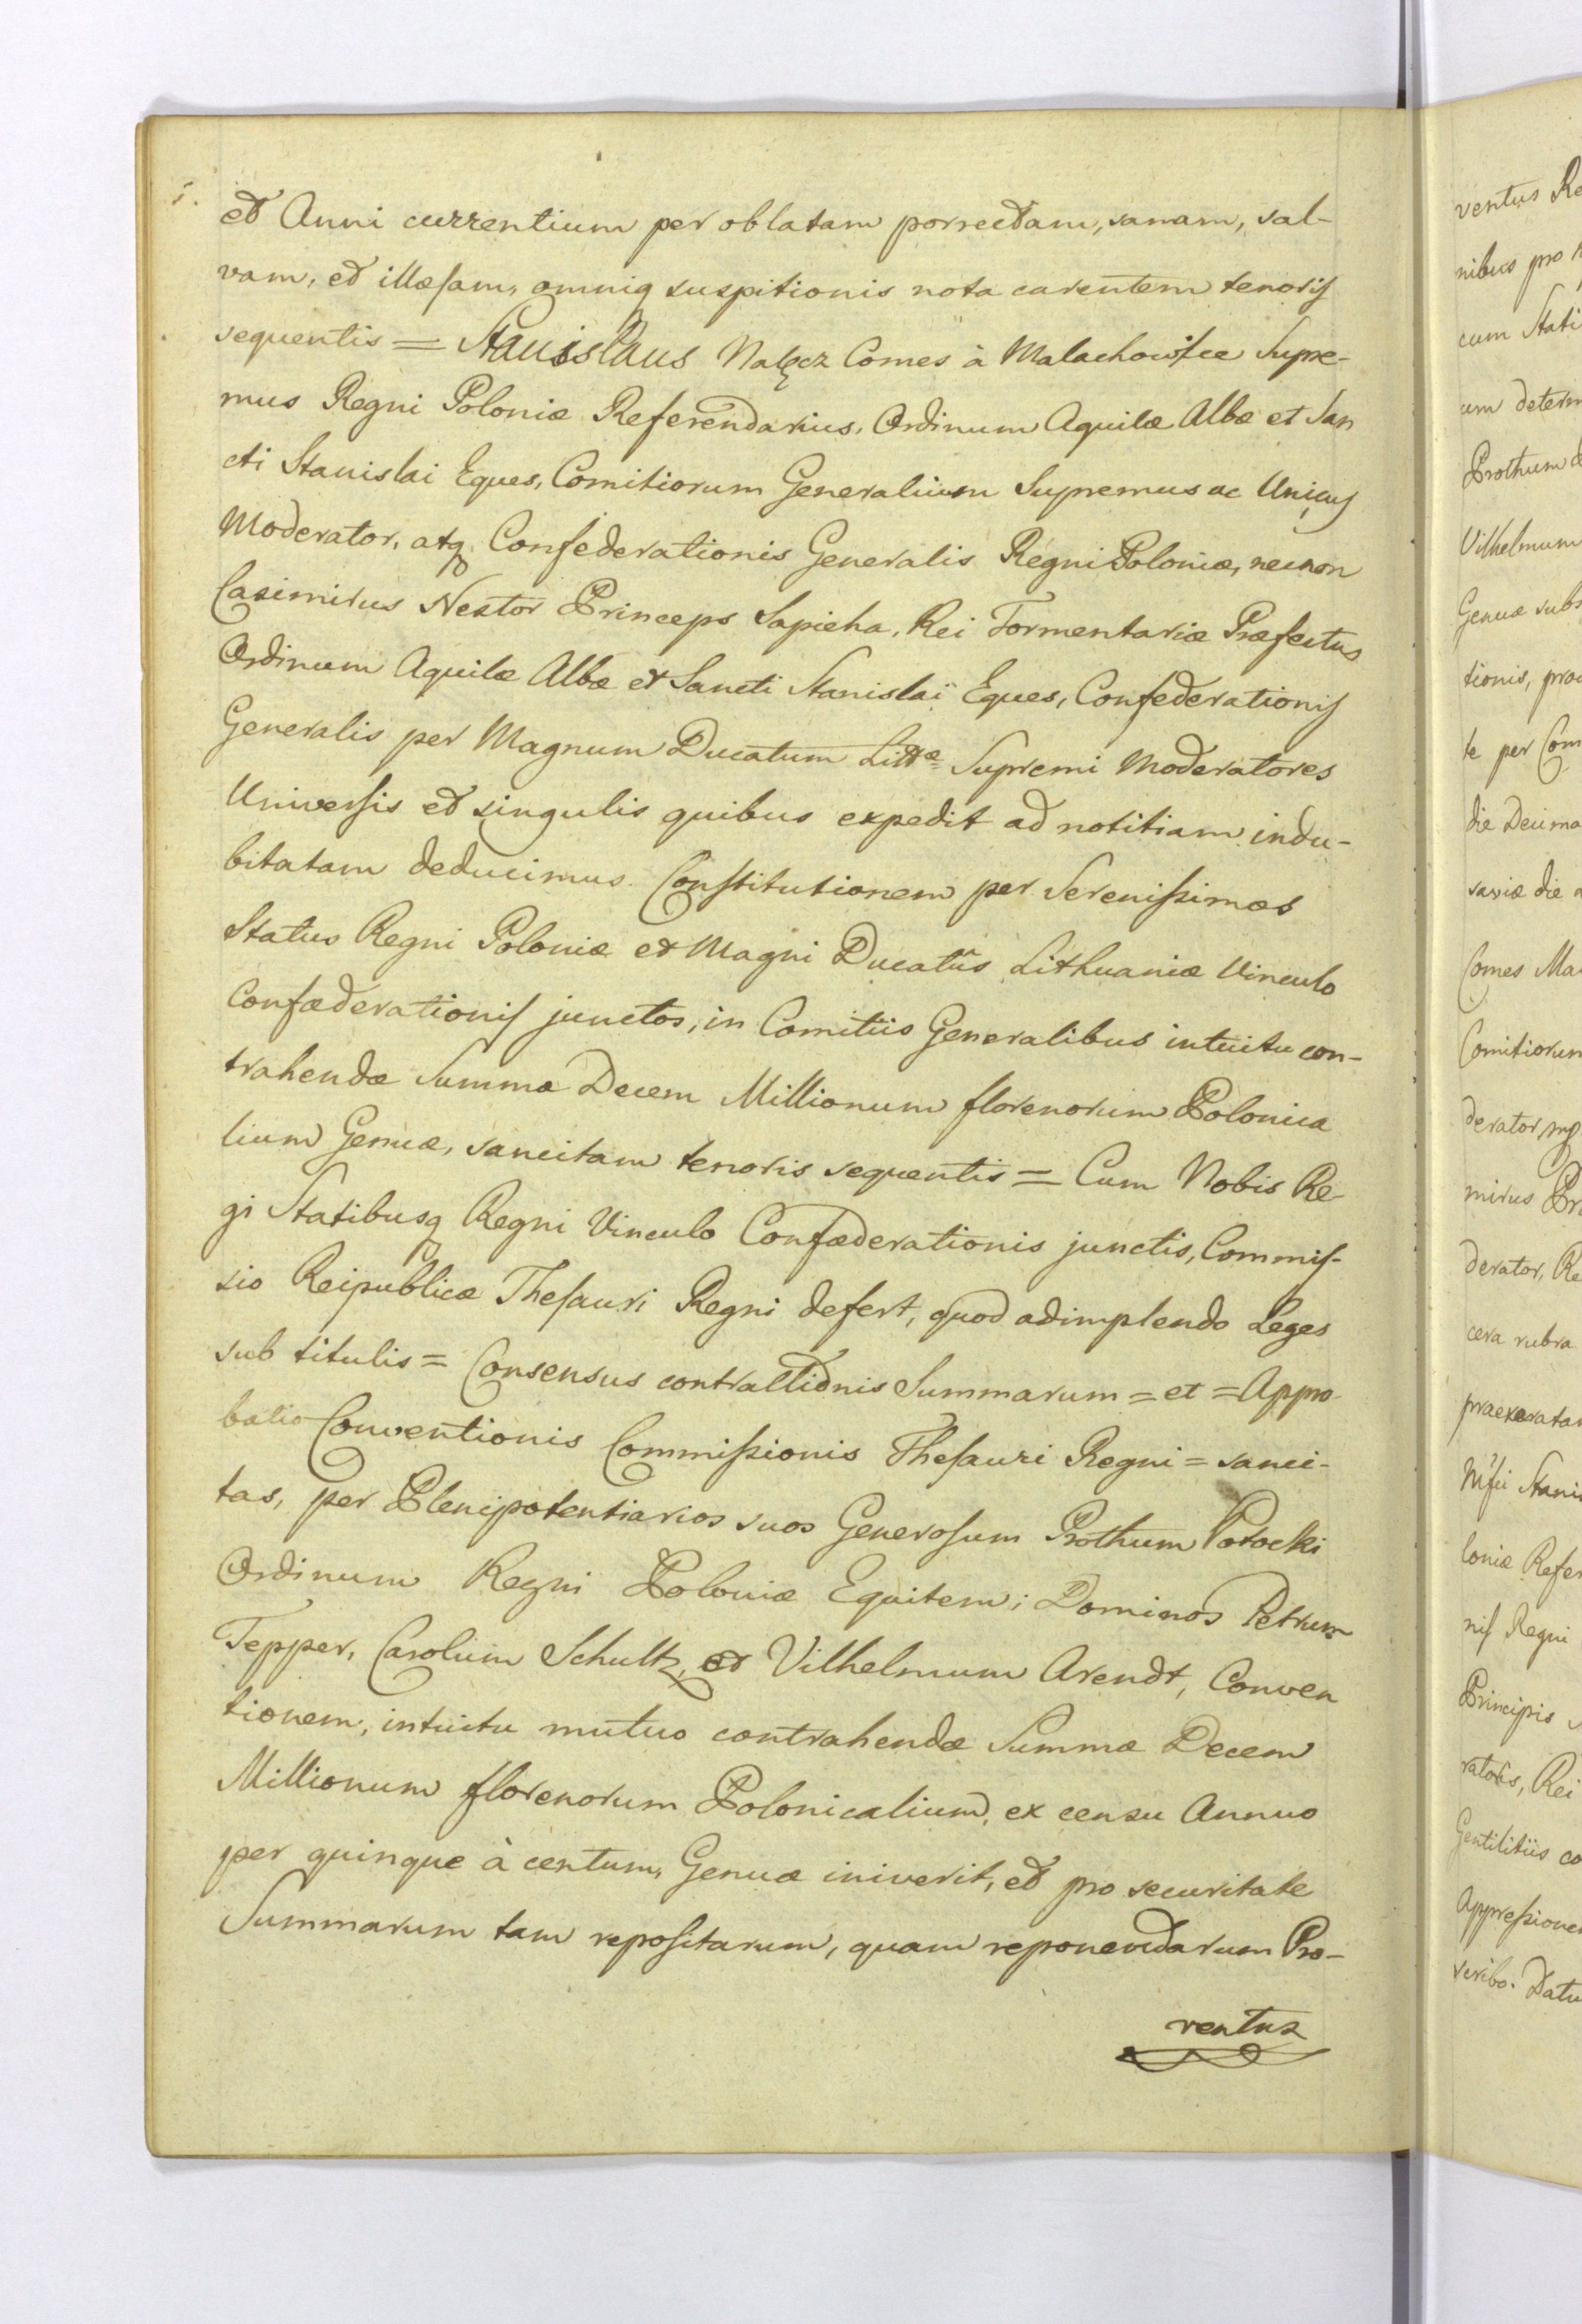 et Anni currentium per oblatam porrectam, sanam, sal-
vam, et illæsam, omniq suspitionis nota carentem tenoris
sequentis = Stanislaus Nałęcz Comes à Malachowice Supre-
mus Regni Poloniæ Referendarius, Ordinum Aquilæ Albæ et San
cti Stanislai Eques, Comitiorum Generalium Supremus ac Unicus
Moderator, atq Confederationis Generalis Regni Poloniæ, necnon
Casimirus Nestor Princeps Sapieha, Rei Tormentariæ Præfectus
Ordinum Aquilæ Albæ et Sancti Stanislai Eques, Confederationis
Generalis per Magnum Ducatum Littæ Supremi Moderatores
Universis et singulis quibus expedit ad notitiam indu-
bitatam deducimus. Constitutionem per Serenissimos
Status Regni Poloniæ et Magni Ducatûs Lithuaniæ Vinculo
Confæderationis junctos, in Comitiis Generalibus intuitu con-
trahendæ Summæ Decem Millionum florenorum Polonica
lium Genuæ, sancitam tenoris sequentis = Cum Nobis Re-
gi Statibusq Regni Vinculo Confæderationis junctis, Commis-
sio Reipublicæ Thesauri Regni defert, quod adimplendo Leges
sub titulis = Consensus contractionis Summarum = et = Appro-
batio Conventionis Commissionis Thesauri Regni = sanci-
tas, per Plenipotentiarios suos Generosum Prothum Potocki
Ordinum Regni Poloniæ Equitem; Dominos Petrum
Tepper, Carolum Schultz, et Vilhelmum Arendt, Conven
tionem, intuitu mutuo contrahendæ Summæ Decem
Millionum florenorum Polonicalium, ex censu Annuo
per quinque à centum, Genuæ iniverit, et pro securitate
Summarum tam repositarum, quam reponendarum Pro-
ventus
ventus Re
nibus pro
cum Stati
um determ
Prothum
Vilhelmum
Genuæ subs
tionis, pro
te per Com
die Decima
saviæ die
Comes Ma
Comitiorum
derator
mirus Pr
derator, Re
cera rubra
præexarata
Stani
loniæ Refer
nis Regni
Principis
ratoris, Rei
Gentilitiis co
Appressione
scribo. Datu